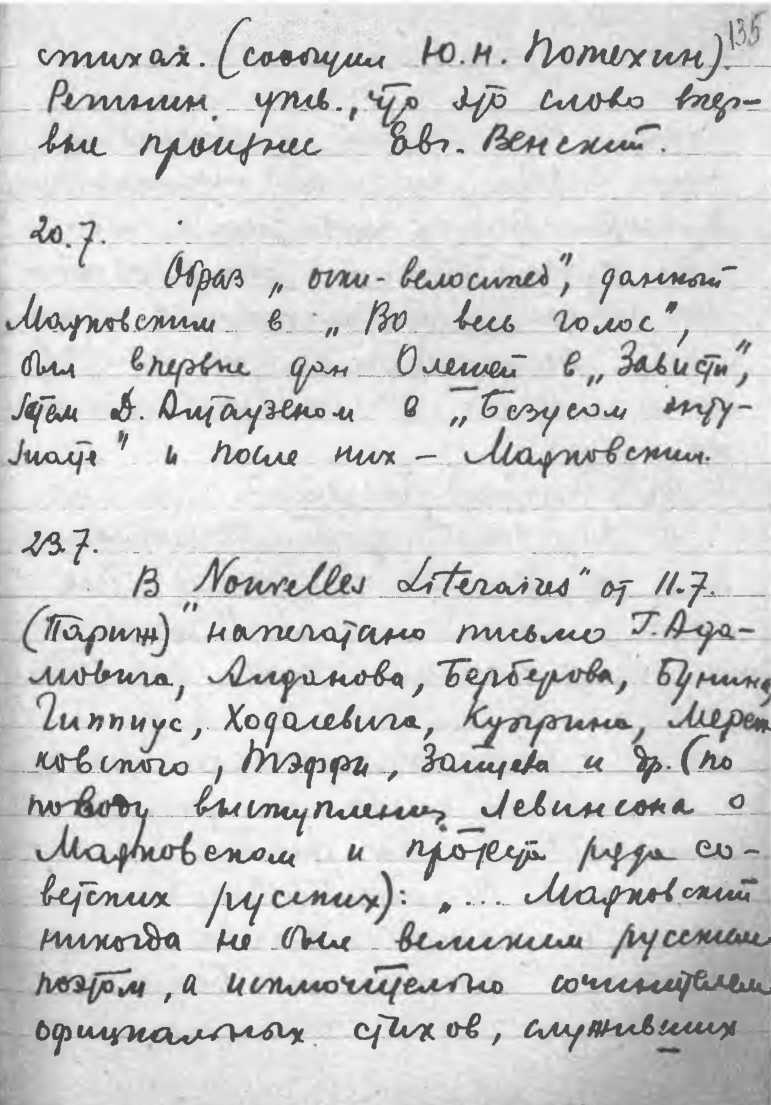 135
стихах. (сообщил Ю.Н. Потехин).
утв., что это слово впер-
вые произнес Евг. Венский.
20.7.
Образ „очки-велосипед", данный
Маяковским в „Во весь голос",
был впервые дан Олешей в „Зависти",
затем Д. Алтаузеном в „Безусом энту-
зиасте" и после них – Маяковским.
23.7.
В „Nouvelles Literaires" от 11.7.
(Париж) напечатано письмо Г. Ада-
мовича, Алданова, Берберова, Бунина,
Гиппиус, Ходасевича, Куприна, Мереж
ковского, Тэффи, Зайцева и др. (по
поводу выступления Левинсона о
Маяковском и протеста ряда со-
ветских русских): „... Маяковский
никогда не был великим русским
поэтом, а исключительно сочинителем
официальных стихов, служивших